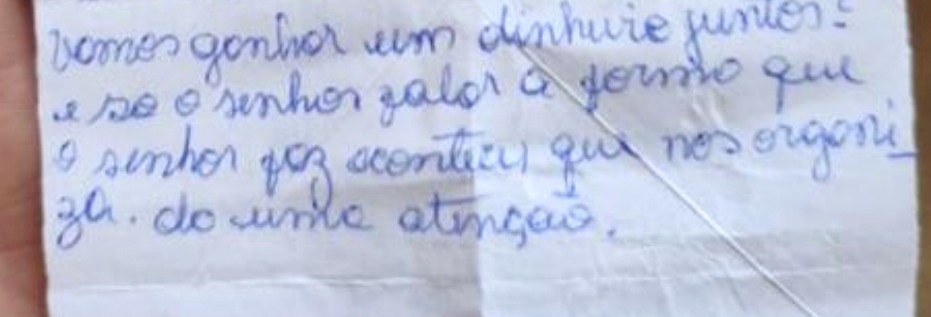 vamos ganhar um dinhurio juntos?
e so o senhor falar a forma que
o senhor faz acontecer que nos organi_
za. da uma atenção.